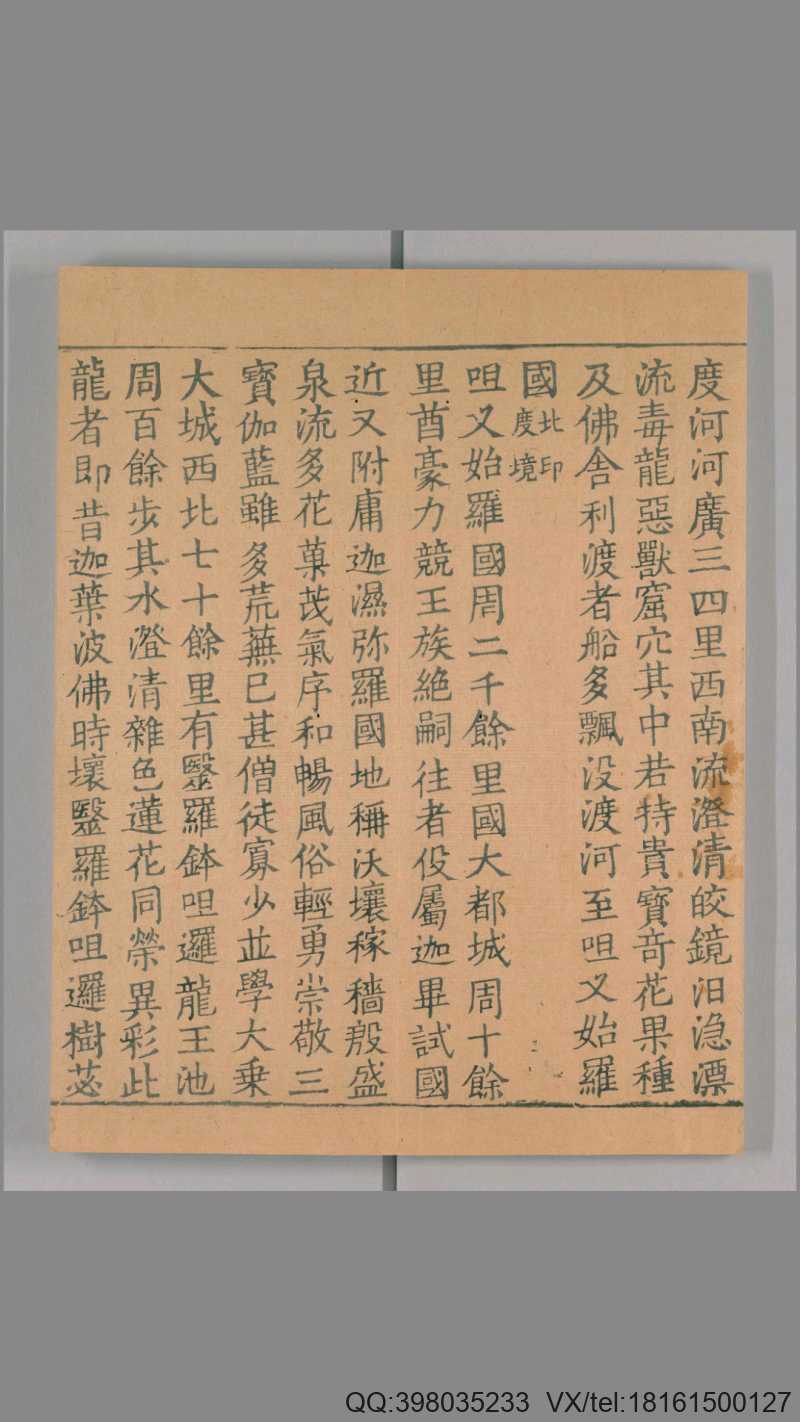 度河河廣三四里西南流澄清皎鏡汨㴔漂
流毒龍惡獸窟穴其中若持貴寶竒花果種
及佛舎利渡者船多飄没渡河至呾叉始羅
國北印度境
呾叉始羅國周二千餘里國大都城周十餘
里酋豪力競王族絶嗣往者役屬迦畢試國
近又附庸迦濕弥羅國地稱沃壤稼穡殷盛
泉流多花菓茂氣序和暢風俗輕勇崇敬三
寳伽藍雖多荒蕪已甚僧徒寡少並學大乗
大城西北七十餘里有毉羅鉢呾邏龍王池
周百餘步其水澄清雜色蓮花同榮異彩此
龍者即昔迦葉波佛時壞毉羅鉢呾邏樹苾
QQ:398035233 VX/tel:18161500127